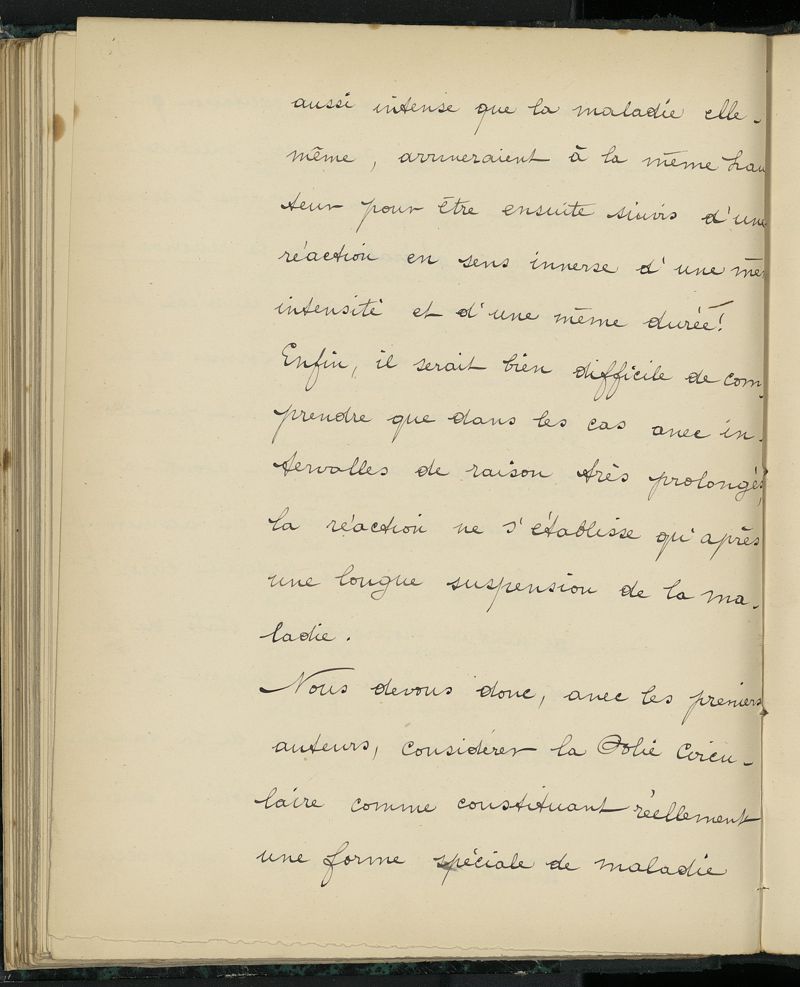 aussi intense que la maladie elle-
même, arriveraient à la même hau
teur pour être ensuite suivis d'une
réaction en sens inverse d'une mêm
intensité et d'une même durée!
Enfin, il serait bien difficile de com
prendre que dans les cas avec in-
tervalles de raison très prolongés,
la réaction ne s'établisse qu'après
une longue suspension de la ma-
ladie.
Nous devons donc, avec les premiers
auteurs, considérer la Folie Circu-
laire comme constituant réellement
une forme spéciale de maladie